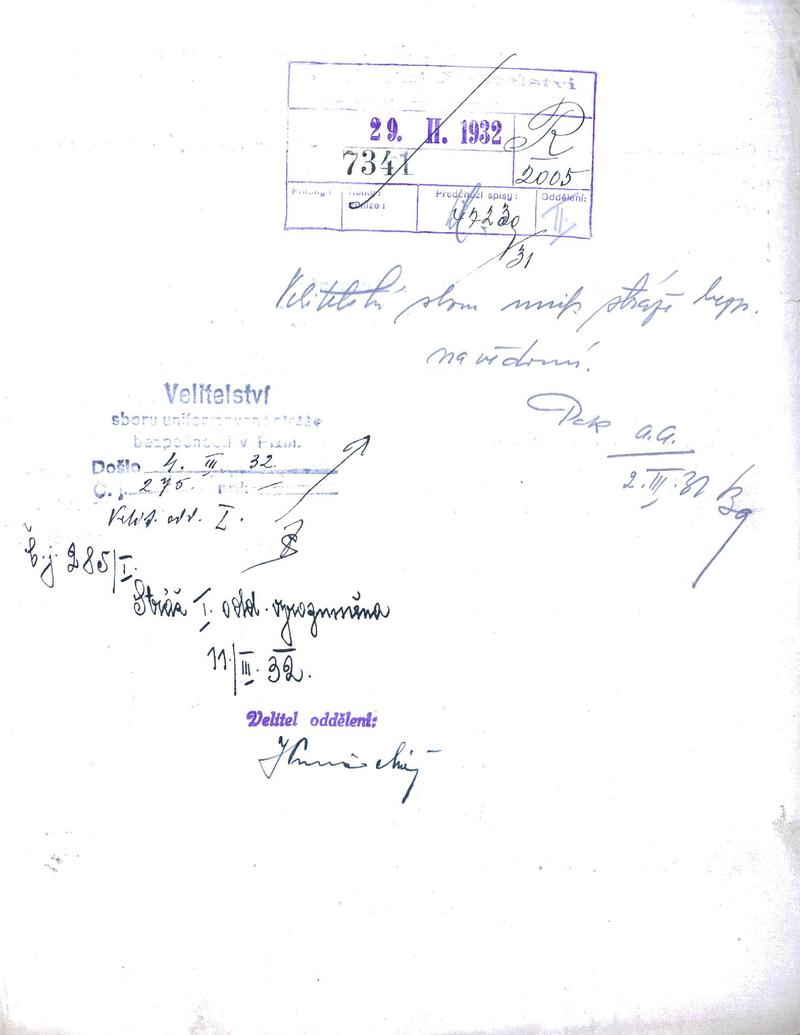 29. II. 1932
7341
R
2005
Přílohy: Předchozí spisy: Oddělení:
4723g II.
/31
Velitelství sboru unif. stráže bezp.
na vědomí.
Pak a.a.
2.III.32
Velitelství
sboru uniformované stráže
bezpečnosti v Plzni.
Došlo 4. III. 32.
Č. j. 275.
Velit. odd. I.
Č.j. 285/I.
Stráž I. odd. vyrozuměna
11/III. 32.
Velitel oddělení: